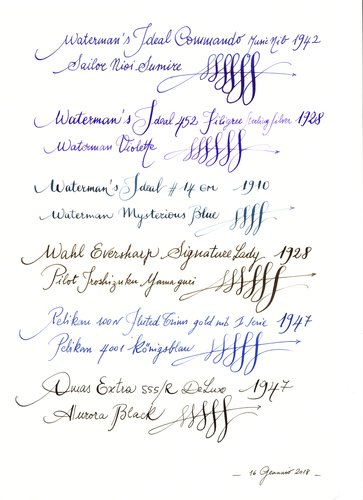 Waterman's Ideal Commando Music Nib 1942
Sailor Nioi Sumire
Waterman's Ideal 452 Filigree Sterling silver 1928
Waterman Violette
Waterman's Ideal #14 GM 1910
Waterman Mysterious Blue
Wahl Eversharp Signature Lady 1928
Pilot Iroshizuku Yama guri
Pelikan 100N gold nib I Serie 1947
Pelikan 4001 Königsblau
Omas Extra 555/R DeLuxe 1947
Aurora Black
— 16 Gennaio 2018 —